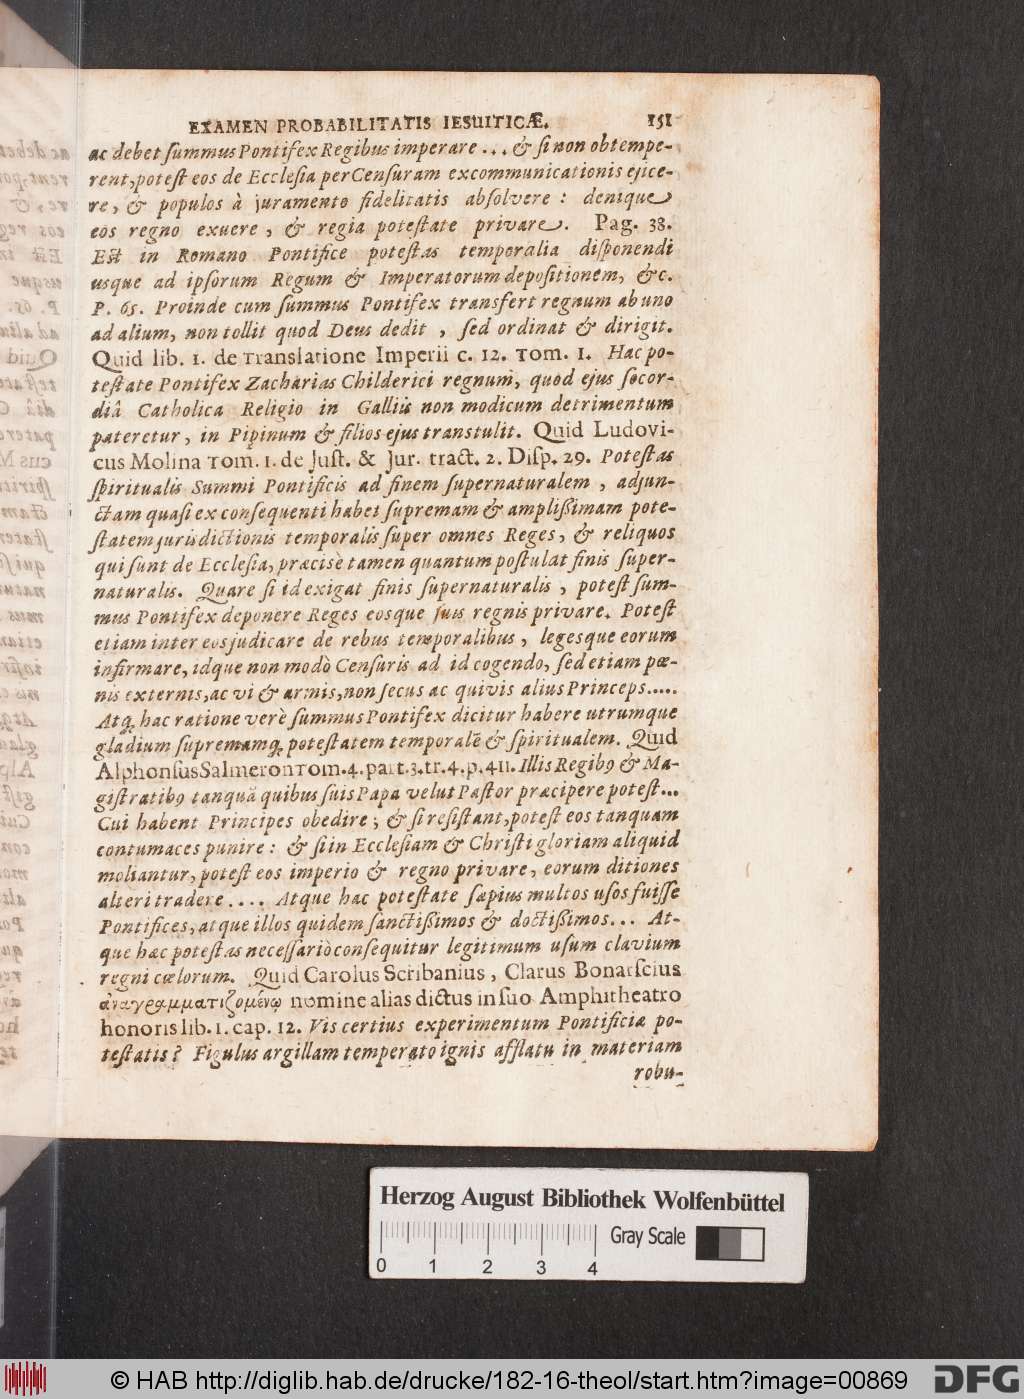 EXAMEN PROBABILITATIS IESUITICÆ. 151
ac debet ſummus Pontifex Regibus imperare ... & ſi non obtempe-
rent, poteſt eos de Eccleſia per Cenſuram excommunicationis ejice-
re, & populos à juramento fidelitatis abſolvere : denique
eos regno exuere, & regia poteſtate privare. Pag. 38.
Eſt in Romano Pontifice poteſtas temporalia diſponendi
usque ad ipſorum Regum & Imperatorum depoſitionem, &c.
P. 65. Proinde cum ſummus Pontifex transfert regnum ab uno
ad alium, non tollit quod Deus dedit , ſed ordinat & dirigit.
Quid lib. 1. de Translatione Imperii c. 12. Tom. 1. Hac po-
teſtate Pontifex Zacharias Childerici regnum, quod ejus ſocor-
diâ Catholica Religio in Galliis non modicum detrimentum
pateretur, in Pipinum & filios ejus transtulit. Quid Ludovi-
cus Molina Tom. 1. de Juſt. & Jur. tract. 2. Diſp. 29. Poteſtas
ſpiritualis Summi Pontificis ad finem ſupernaturalem , adjun-
ctam quaſi ex conſequenti habet ſupremam & ampliſſimam pote-
ſtatem jurisdictionis temporalis ſuper omnes Reges, & reliquos
qui ſunt de Eccleſia, præcisè tamen quantum poſtulat finis ſuper-
naturalis. Quare ſi id exigat finis ſupernaturalis , poteſt ſum-
mus Pontifex deponere Reges eosque ſuis regnis privare. Poteſt
etiam inter eos judicare de rebus temporalibus, legesque eorum
infirmare, idque non modò Cenſuris ad id cogendo, ſed etiam pœ-
nis externis, ac vi & armis, non ſecus ac quivis alius Princeps.....
Atq; hac ratione verè ſummus Pontifex dicitur habere utrumque
gladium ſupremamq; poteſtatem temporalē & ſpiritualem. Quid
Alphonſus Salmeron Tom. 4. part. 3. tr. 4. p. 411. Illis Regibꝰ & Ma-
giſtratibꝰ tanquā quibus ſuis Papa velut Paſtor præcipere poteſt...
Cui habent Principes obedire ; & ſi reſiſtant, poteſt eos tanquam
contumaces punire : & ſi in Eccleſiam & Chriſti gloriam aliquid
moliantur, poteſt eos imperio & regno privare, eorum ditiones
alteri tradere.... Atque hac poteſtate ſæpius multos uſos fuiſſe
Pontifices, atque illos quidem ſanctiſſimos & doctiſſimos... At-
que hæc poteſtas neceſſariò conſequitur legitimum uſum clavium
regni cœlorum. Quid Carolus Scribanius, Clarus Bonarſcius
ἀναγραμματιζομένῳ nomine alias dictus in ſuo Amphitheatro
honoris lib. 1. cap. 12. Vis certius experimentum Pontificiæ po-
teſtatis? Figulus argillam temperato ignis afflatu in materiam
robu-
Herzog August Bibliothek Wolfenbüttel
Gray Scale
0 1 2 3 4
© HAB http://diglib.hab.de/drucke/182-16-theol/start.htm?image=00869
DFG